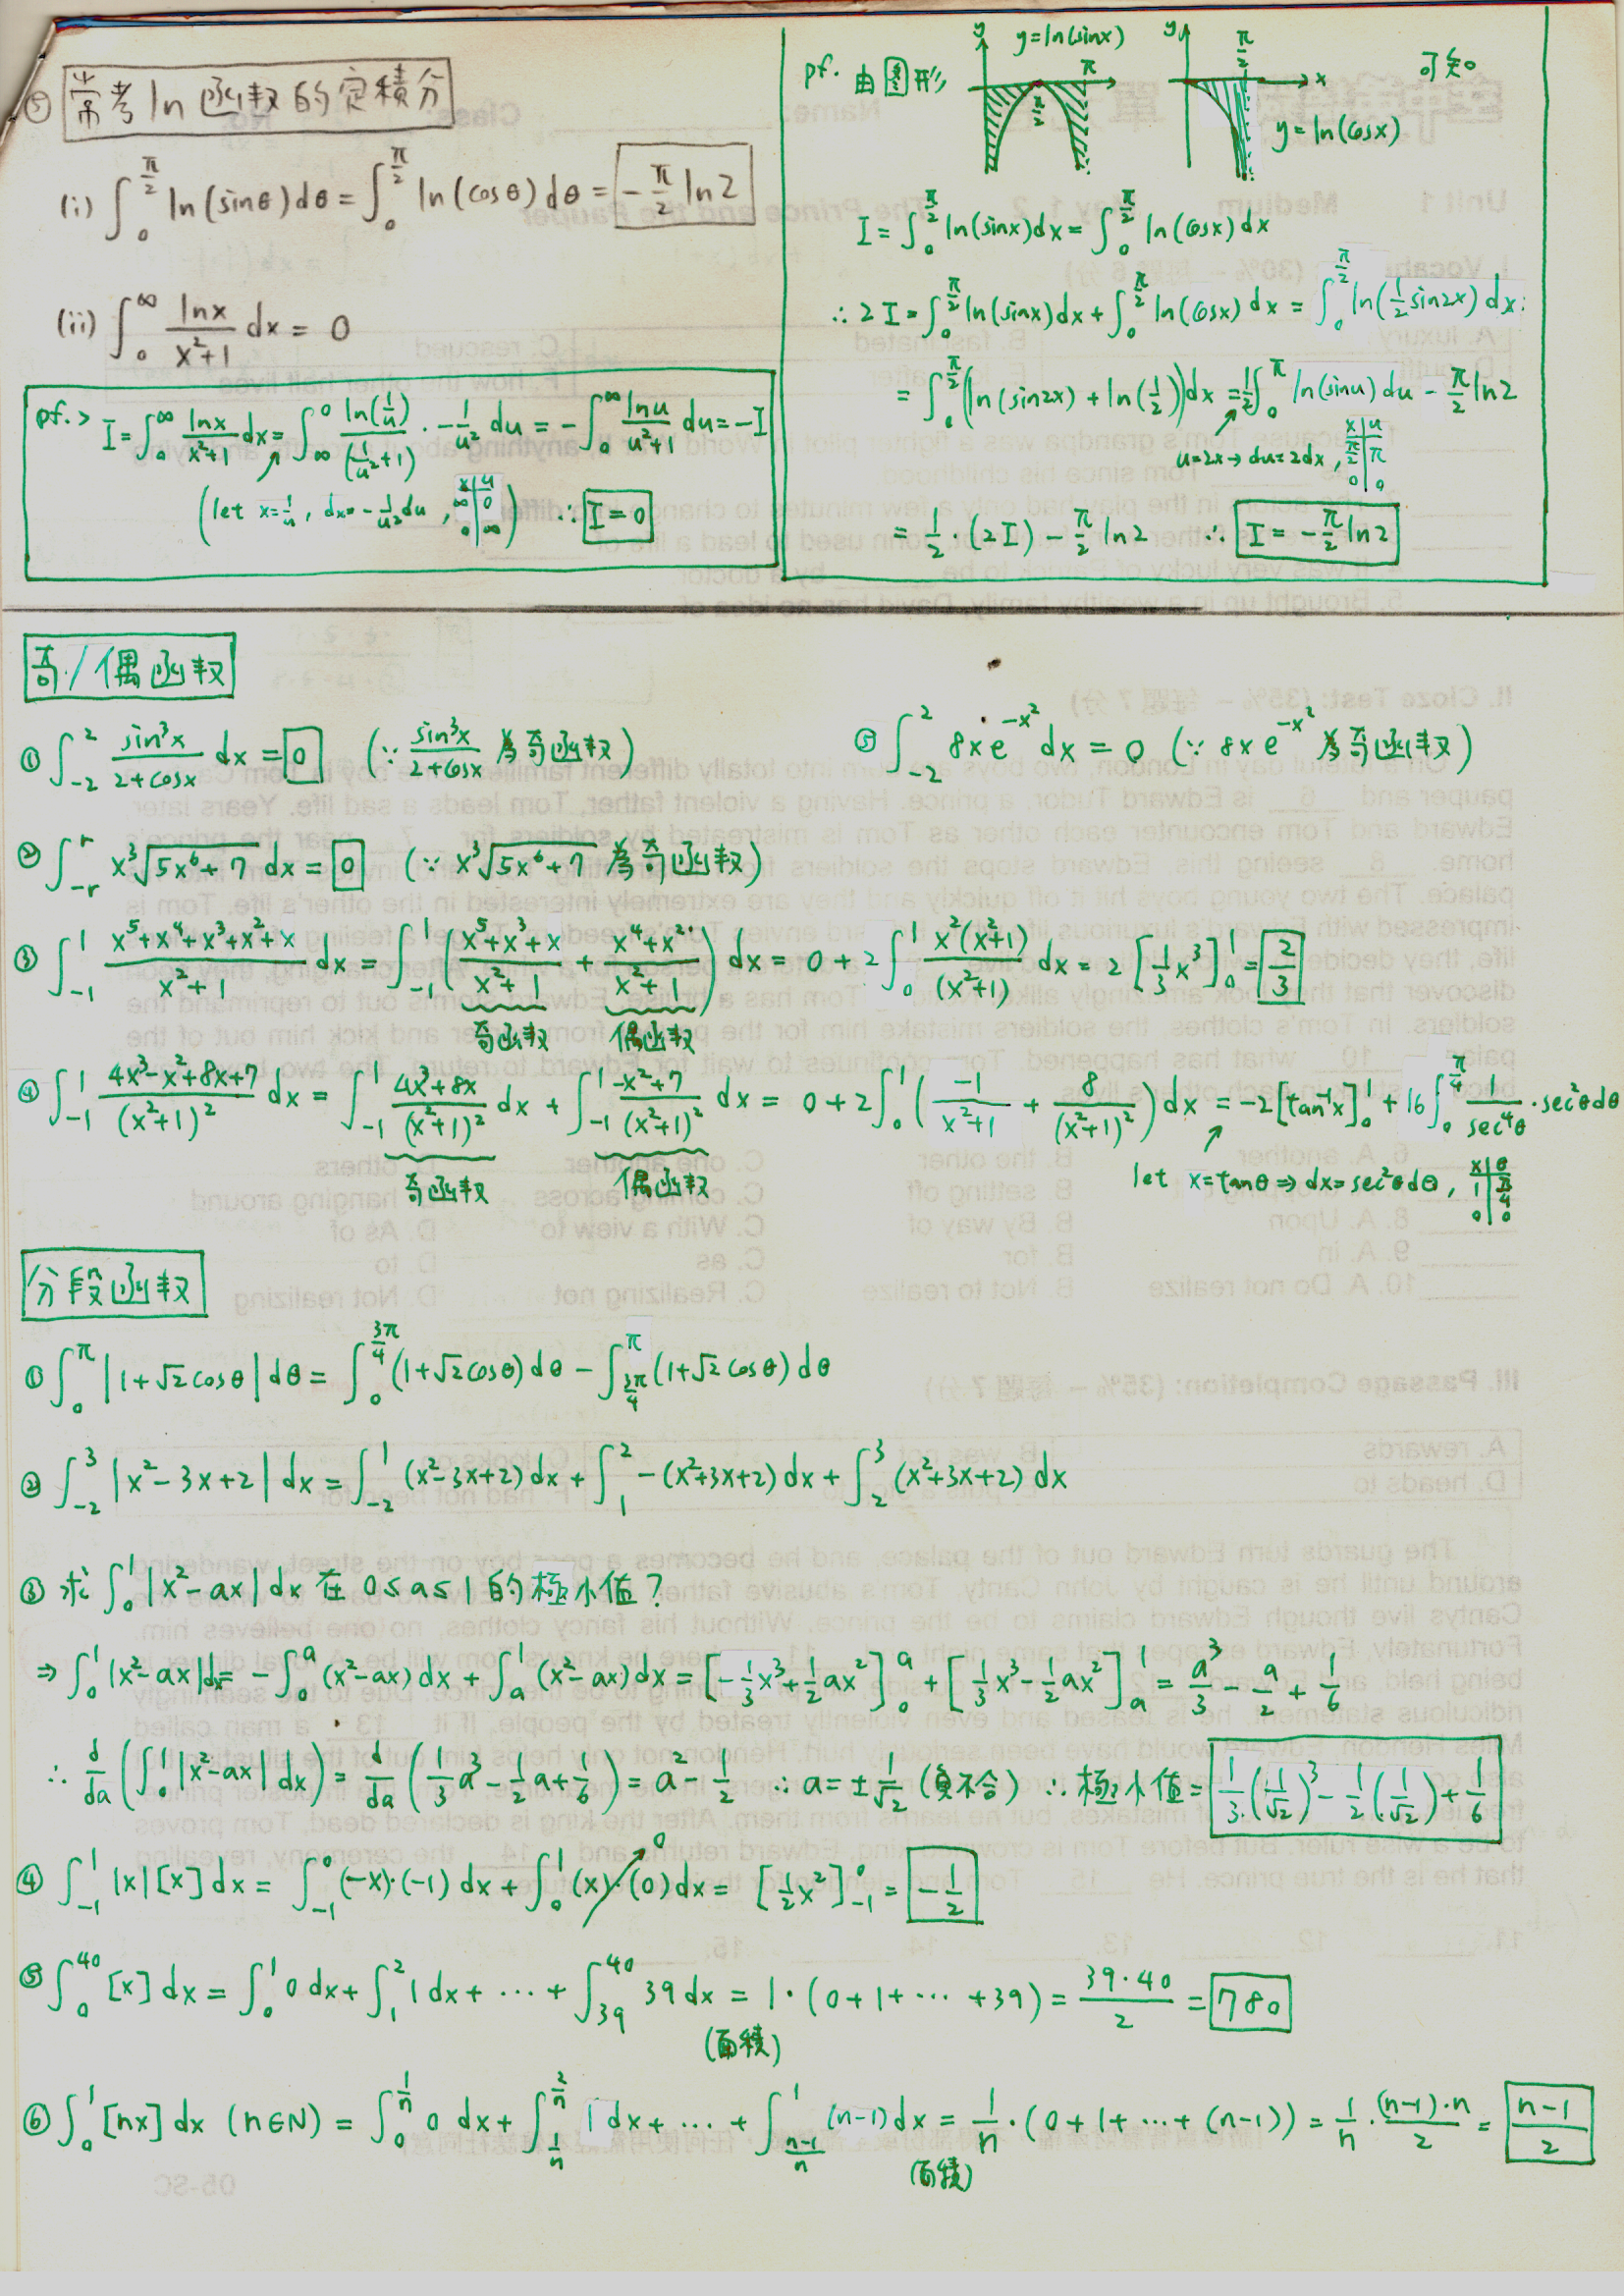 ⑤ 常考 ln 函数的定積分
(i) ∫_0^{π/2} ln(sinθ)dθ = ∫_0^{π/2} ln(cosθ)dθ = -π/2 ln2
(ii) ∫_0^∞ lnx/(x²+1) dx = 0
pf.> I = ∫_0^∞ lnx/(x²+1) dx = ∫_∞^0 ln(1/u)/(1/u²+1) · -1/u² du = -∫_0^∞ lnu/(u²+1) du = -I
(let x=1/u, dx=-1/u² du, x|u ∞|0 0|∞) ∴ I=0
pf. 由图形 y y=ln(sinx) π/2 π y π/2 x y=ln(cosx) 可知。
I = ∫_0^{π/2} ln(sinx)dx = ∫_0^{π/2} ln(cosx)dx
∴ 2I = ∫_0^{π/2} ln(sinx)dx + ∫_0^{π/2} ln(cosx)dx = ∫_0^{π/2} ln(1/2 sin2x)dx
= ∫_0^{π/2} (ln(sin2x) + ln(1/2))dx = 1/2 ∫_0^π ln(sinu)du - π/2 ln2
u=2x → du=2dx, x|u π/2|π 0|0
= 1/2 · (2I) - π/2 ln2 ∴ I = -π/2 ln2
奇/偶函数
① ∫_{-2}^2 sin³x/(2+cosx) dx = 0 (∵ sin³x/(2+cosx) 為奇函数)
⑤ ∫_{-2}^2 8xe^{-x²} dx = 0 (∵ 8xe^{-x²} 為奇函数)
② ∫_{-r}^r x³√(5x⁶+7) dx = 0 (∵ x³√(5x⁶+7) 為奇函数)
③ ∫_{-1}^1 (x⁵+x⁴+x³+x²+x)/(x²+1) dx = ∫_{-1}^1 ((x⁵+x³+x)/(x²+1) + (x⁴+x²)/(x²+1)) dx = 0 + 2∫_0^1 x²(x²+1)/(x²+1) dx = 2[1/3 x³]_0^1 = 2/3
奇函数 偶函数
④ ∫_{-1}^1 (4x³-x²+8x+7)/(x²+1)² dx = ∫_{-1}^1 (4x³+8x)/(x²+1)² dx + ∫_{-1}^1 (-x²+7)/(x²+1)² dx = 0 + 2∫_0^1 (-1/(x²+1) + 8/(x²+1)²)dx = -2[tan⁻¹x]_0^1 + 16∫_0^{π/4} 1/sec⁴θ · sec²θdθ
奇函数 偶函数 let x=tanθ ⇒ dx=sec²θdθ, x|θ 1|π/4 0|0
分段函数
① ∫_0^π |1+√2cosθ|dθ = ∫_0^{3π/4} (1+√2cosθ)dθ - ∫_{3π/4}^π (1+√2cosθ)dθ
② ∫_{-2}^3 |x²-3x+2|dx = ∫_{-2}^1 (x²-3x+2)dx + ∫_1^2 -(x²+3x+2)dx + ∫_2^3 (x²+3x+2)dx
③ 求 ∫_0^1 |x²-ax|dx 在 0≤a≤1 的極小值?
⇒ ∫_0^1 |x²-ax|dx = -∫_0^a (x²-ax)dx + ∫_a^1 (x²-ax)dx = [-1/3 x³ + 1/2 ax²]_0^a + [1/3 x³ - 1/2 ax²]_a^1 = a³/3 - a/2 + 1/6
∴ d/da (∫_0^1 |x²-ax|dx) = d/da (1/3 a³ - 1/2 a + 1/6) = a² - 1/2 ∴ a = ±1/√2 (負不合) ∴ 極小值 = 1/3·(1/√2)³ - 1/2(1/√2) + 1/6
④ ∫_{-1}^1 |x|[x]dx = ∫_{-1}^0 (-x)·(-1)dx + ∫_0^1 (x)·(0)dx 0 = [1/2 x²]_{-1}^0 = -1/2
⑤ ∫_0^{40} [x]dx = ∫_0^1 0dx + ∫_1^2 1dx + ... + ∫_{39}^{40} 39dx = 1·(0+1+...+39) = 39·40/2 = 780
(面積)
⑥ ∫_0^1 [nx]dx (n∈N) = ∫_0^{1/n} 0 dx + ∫_{1/n}^{2/n} 1 dx + ... + ∫_{(n-1)/n}^1 (n-1)dx = 1/n·(0+1+...+(n-1)) = 1/n · (n-1)·n/2 = (n-1)/2
(面積)